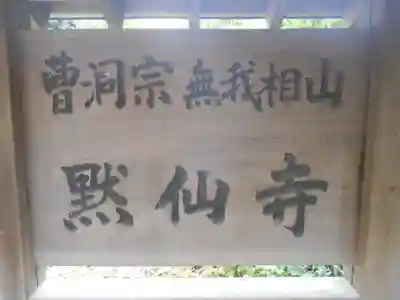 曹洞宗 無我相山
黙仙寺